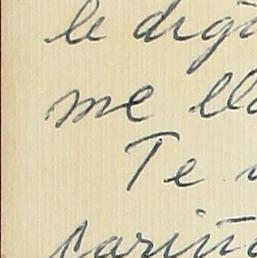 le diga
me lla
Te
cariño